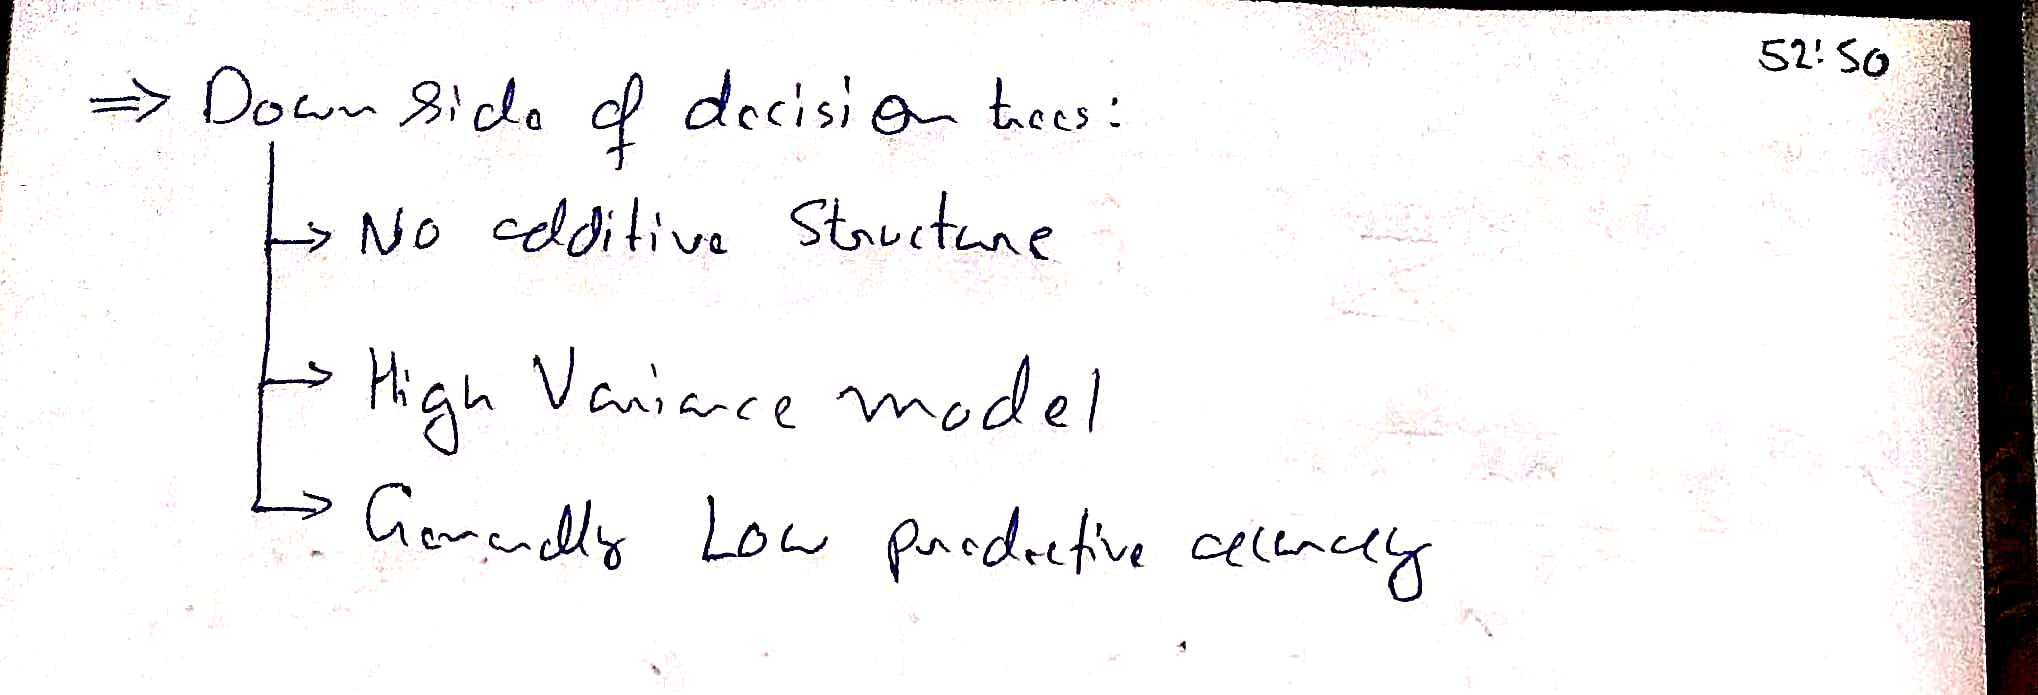 52:50
=> Down side of decision trees:
→ No additive structure
→ High Variance model
→ Generally Low predictive accuracy